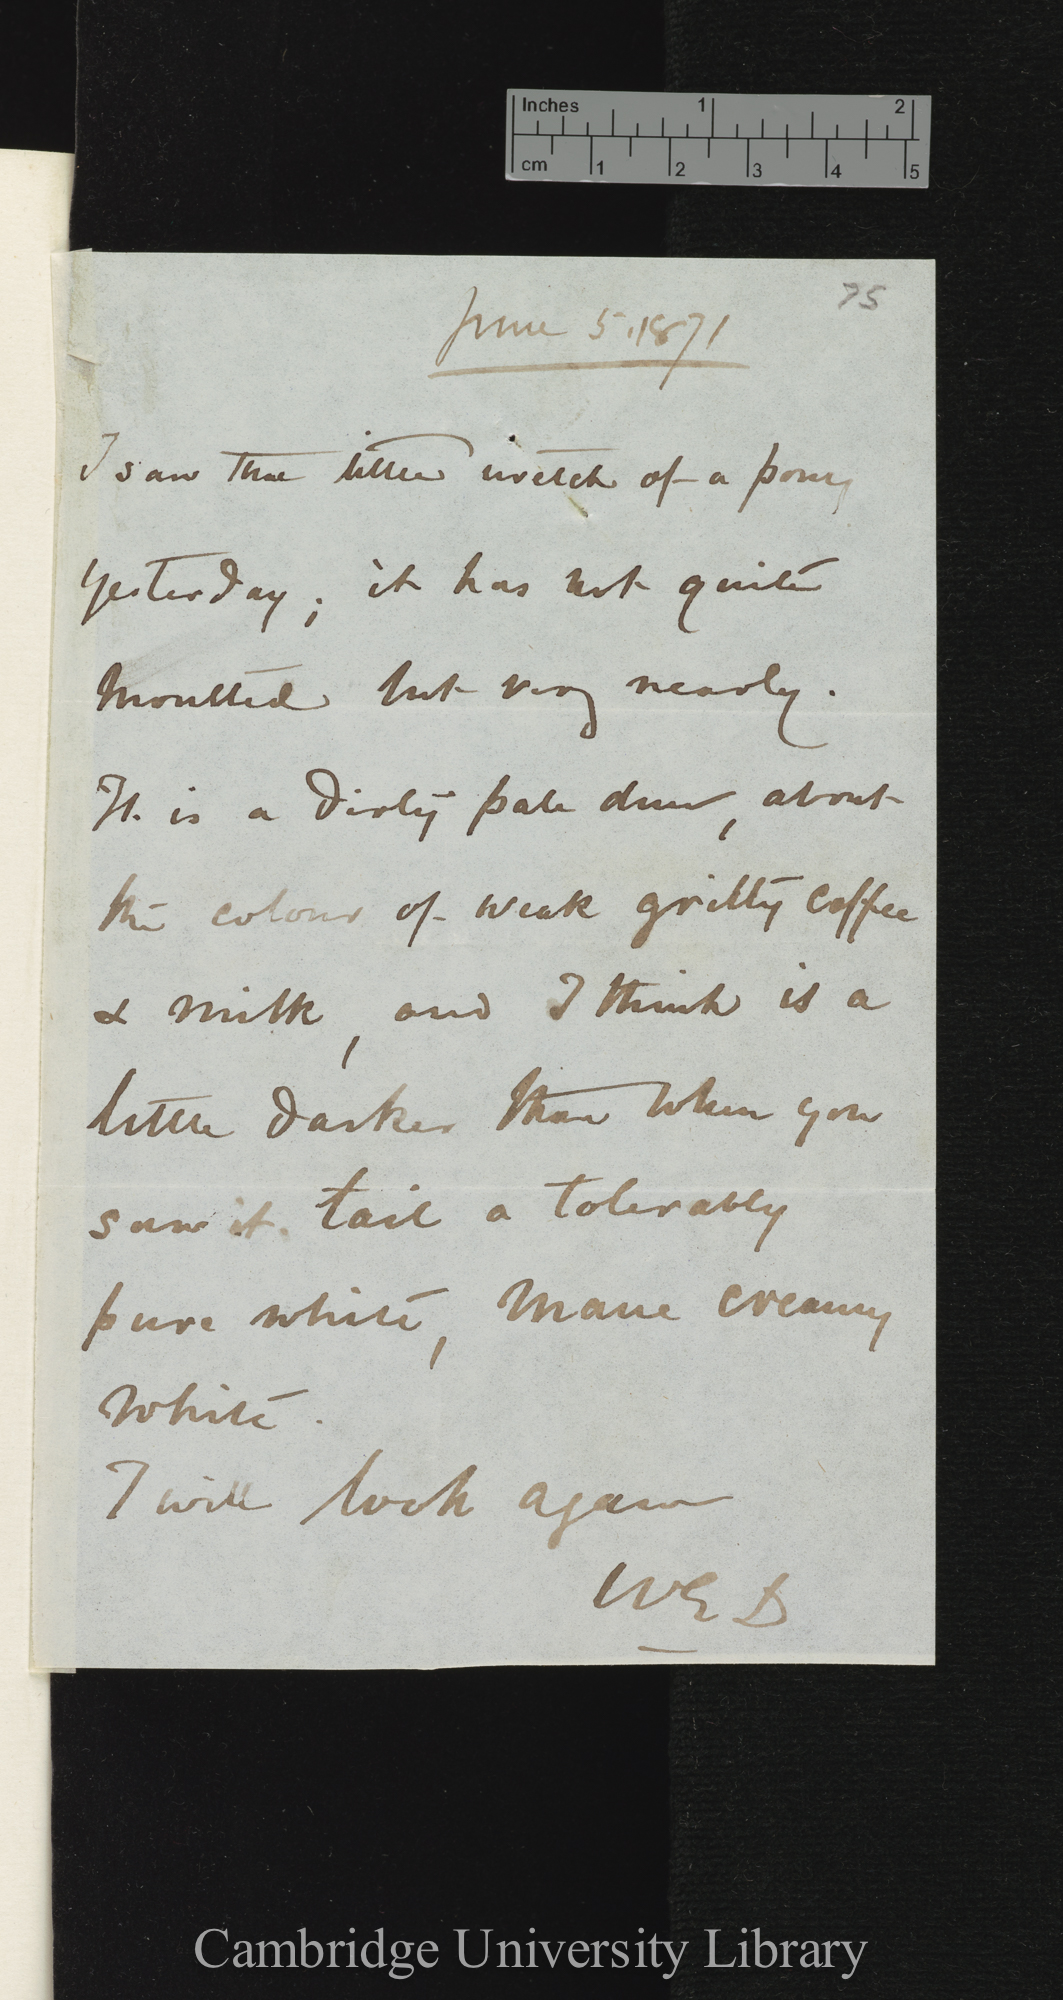 Inches 1 2
cm 1 2 3 4 5
75
June 5. 1871
I saw that little wretch of a pony
yesterday; it has not quite
moulted but very nearly.
It is a dirty pale dun, about
the colour of weak gritty coffee
& milk, and I think is a
little darker than when you
saw it. tail a tolerably
pure white, mane creamy
white.
I will look again
WED
Cambridge University Library